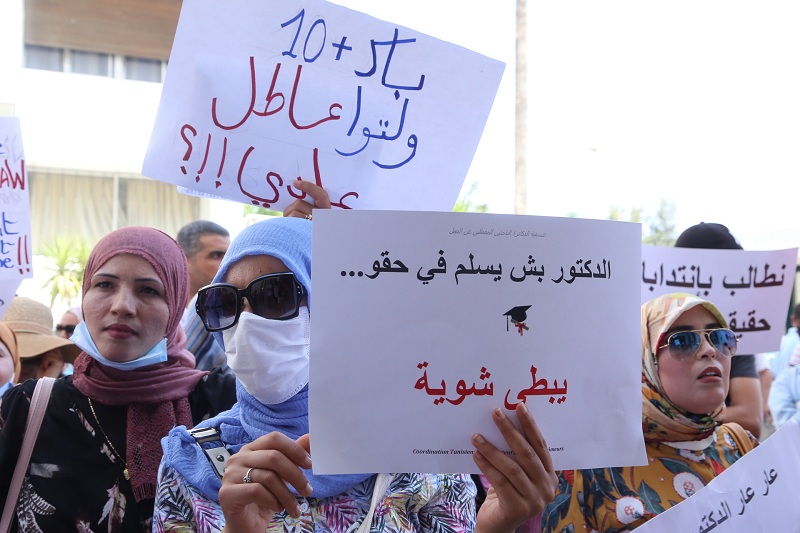 باك +10
ولتوا عاطل
عادي !!!؟
تنسيقية الدكاترة الباحثين المعطلين عن العمل
الدكتور بش يسلم في حقو...
يبطى شوية
Coordination Tunisien
نطالب بإنتدابا
حقيق
عار عار الدكتو
AW
!!